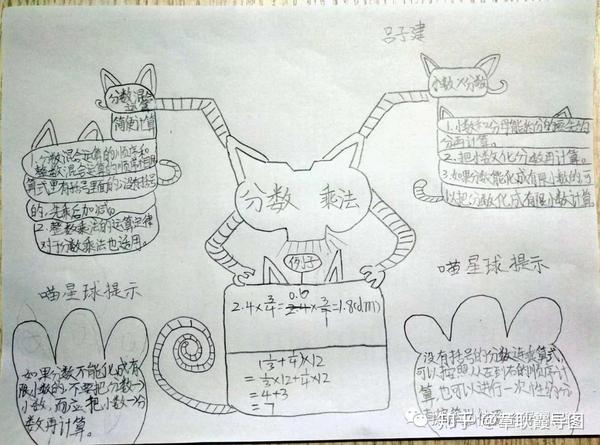 吕子建
分数混合
运算
简便计算
1.分数混合运算的顺序和
整数混合运算的顺序相同
算式里有括号里面的,没有括号
的,先乘后加减。
2.整数乘法的运算定律
对于分数乘法也适用。
小数×分数
1.小数和分母能约分的要先约
分再计算。
2.把小数化分数再计算。
3.如果分数能化成有限小数的可
以把分数化成有限小数计算。
分数 乘法
例子
0.6
2.4×3/4=2.4×3/4=1.8(dm)
1
(1/3+1/4)×12
=1/3×12+1/4×12
=4+3
=7
喵星球提示
如果分数不能化成有
限小数的,不要把分数→
小数,而应把小数→分
数再计算。
喵星球提示
没有括号的分数连乘算式,
可以按照从左到右的顺序计
算,也可以进行一次性的约
知乎 @覃耿囊导图